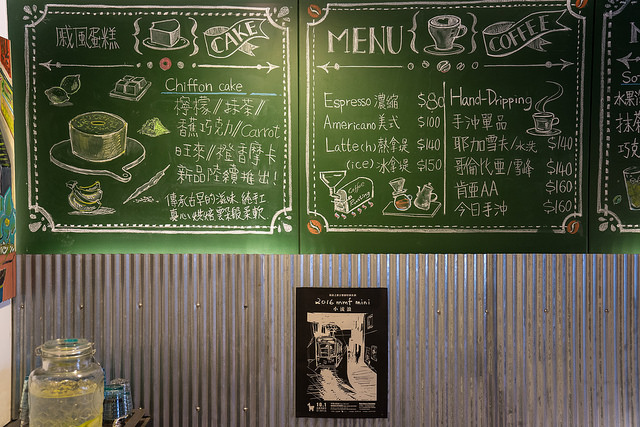 戚風蛋糕
CAKE
Chiffon cake
檸檬//抹茶//
香蕉巧克力//Carrot
旺來//橙香摩卡
新品陸續推出!
傳承古早的滋味 純手工
真心烘焙 綿密柔軟
MENU
COFFEE
Espresso 濃縮 $80
Americano 美式 $100
Latte(h) 熱拿堤 $140
(ice) 冰拿堤 $150
Hand-Dripping
手沖單品
耶加雪夫/水洗 $140
哥倫比亞/雪峰 $140
肯亞AA $160
今日手沖 $160
Coffee
So
水果
抹
巧克
2016 mmt mini
小旅遊
10.1